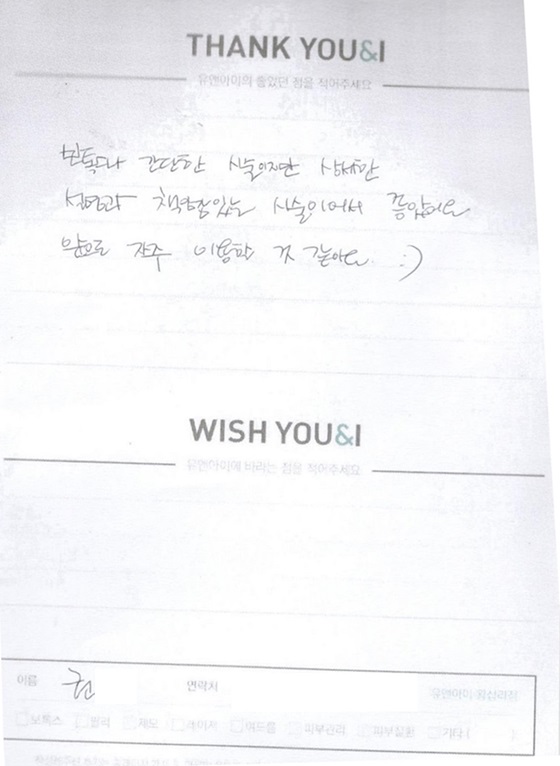 THANK YOU&I
유앤아이의 좋았던 점을 적어주세요
보톡스 간단한 시술이지만 상세한
설명과 책임감있는 시술이어서 좋았어요
앞으로 자주 이용할 것 같아요 :)
WISH YOU&I
유앤아이에 바라는 점을 적어주세요
이름 권 연락처 유앤아이 왕십리점
보톡스 필러 제모 레이저 여드름 피부관리 피부질환 기타 ( )